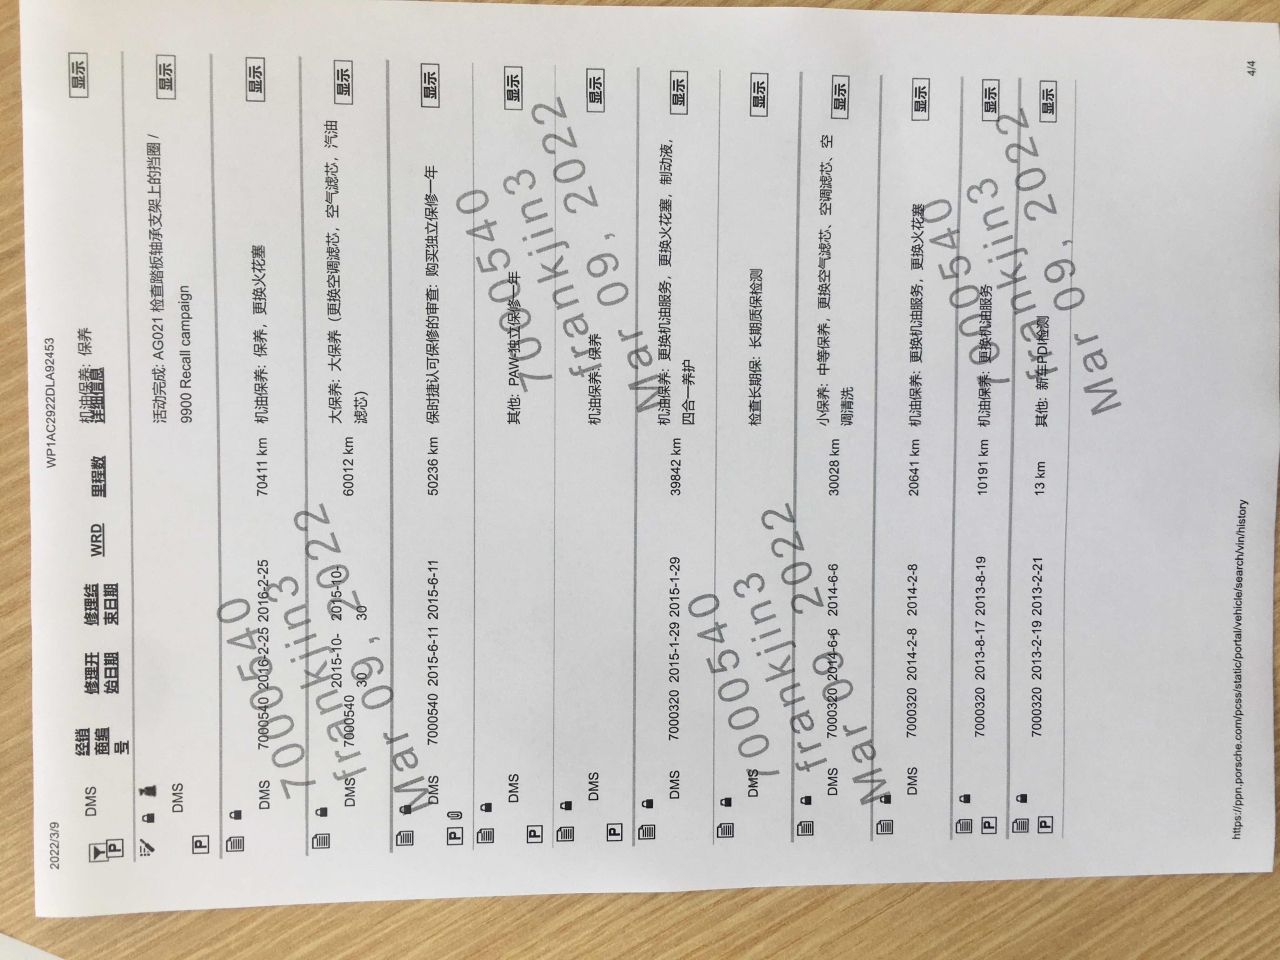 2022/3/9 WP1AC2922DLA92453
经销商编号 修理开始日期 修理结束日期 WRD 里程数 详细信息
DMS 机油保养: 保养 显示
DMS 活动完成: AG021 检查踏板轴承支架上的挡圈 / 显示
9900 Recall campaign
P
DMS 7000540 2016-2-25 2016-2-25 70411 km 机油保养: 保养, 更换火花塞 显示
DMS 7000540 2015-10-30 2015-10-30 60012 km 大保养: 大保养 (更换空调滤芯, 空气滤芯, 汽油 显示
滤芯)
DMS 7000540 2015-6-11 2015-6-11 50236 km 保时捷认可保修的审查: 购买独立保修一年 显示
P
DMS 其他: PAW-独立保修一年 显示
P
DMS 机油保养: 保养 显示
P
DMS 7000320 2015-1-29 2015-1-29 39842 km 机油保养: 更换机油服务, 更换火花塞, 制动液, 显示
四合一养护
DMS 检查长期保: 长期质保检测 显示
DMS 7000320 2014-6-6 2014-6-6 30028 km 小保养: 中等保养, 更换空气滤芯、空调滤芯、空 显示
调清洗
DMS 7000320 2014-2-8 2014-2-8 20641 km 机油保养: 更换机油服务, 更换火花塞 显示
P 7000320 2013-8-17 2013-8-19 10191 km 机油保养: 更换机油服务 显示
P 7000320 2013-2-19 2013-2-21 13 km 其他: 新车PDI检测 显示
7000540
frankjin3
Mar 09, 2022
7000540
frankjin3
Mar 09, 2022
7000540
frankjin3
Mar 09, 2022
7000540
frankjin3
Mar 09, 2022
https://ppn.porsche.com/pcss/static/portal/vehicle/search/vin/history 4/4